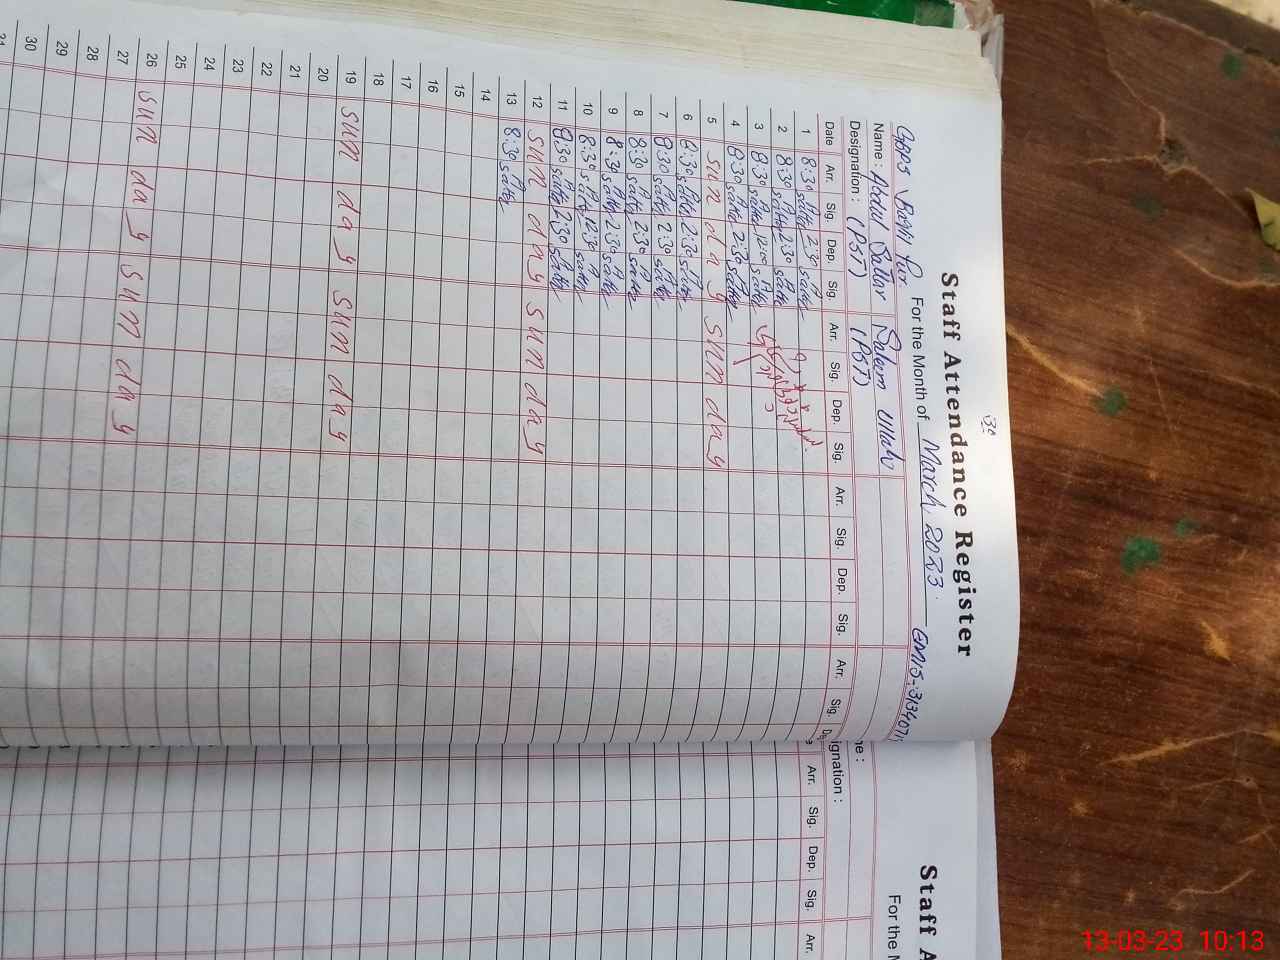 Staff Attendance Register
For the Month of March 2023
Name : Abdul Sattar Saleem Ullah
Designation : (PST) (PST)
Date Arr. Sig. Dep. Sig. Arr. Sig. Dep. Sig. Arr. Sig. Dep. Sig. Arr. Sig.
1 8:30 Sattar 2:30 Sattar
2 8:30 Sattar 2:30 Sattar
3 8:30 Sattar 12:00 Sattar
4 8:30 Sattar 2:30 Sattar
5 Sun day Sun day
6 8:30 Sattar 2:30 Sattar
7 8:30 Sattar 2:30 Sattar
8 8:30 Sattar 2:30 Sattar
9 8:30 Sattar 2:30 Sattar
10 8:30 Sattar 12:30 Sattar
11 8:30 Sattar 2:30 Sattar
12 Sun day Sun day
13 8:30 Sattar
14
15
16
17
18
19 Sun day Sun day
20
21
22
23
24
25
26 Sun day Sun day
27
28
29
30
Staff A
For the M
ignation :
Arr. Sig. Dep. Sig. Arr.
13-03-23 10:13